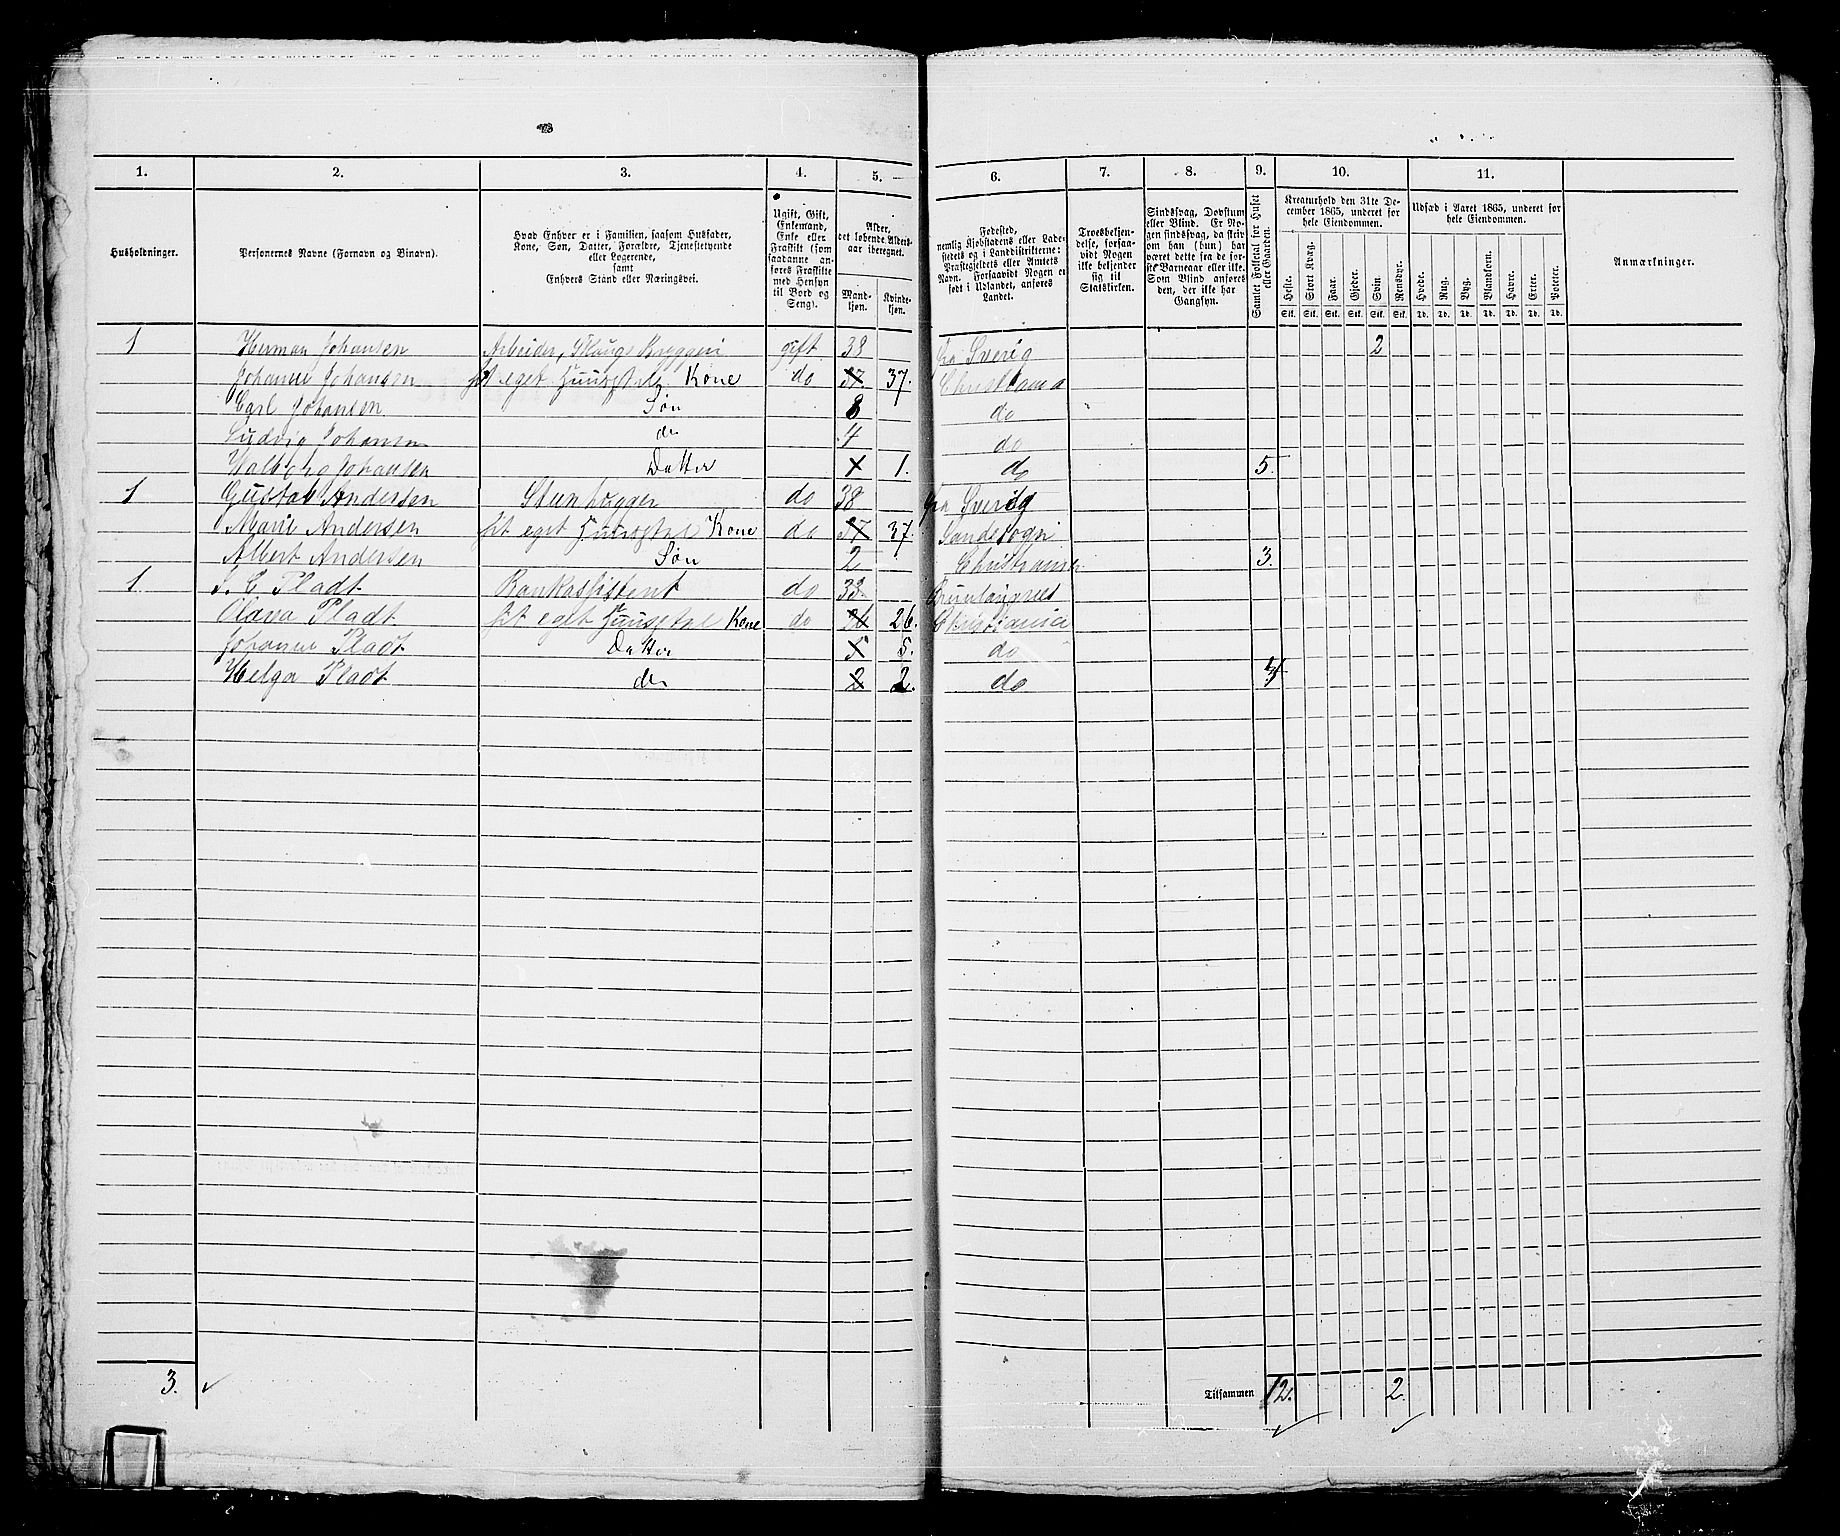 1. 2. 3. 4. 5. 6. 7. 8. 9. 10. 11.
Husholdninger.
Personernes Navne (Fornavn og Binavn).
Hvad Enhver er i Familien, saasom Husfader,
Kone, Søn, Datter, Forældre, Tjenestetyende
eller Logerende,
samt
Enhvers Stand eller Næringsvei.
Ugift, Gift,
Enkemand,
Enke eller
Fraskilt (som
saadanne an-
føres Fraskilte
med Hensyn
til Bord og
Seng).
Alder,
det løbende Alders-
aar iberegnet.
Mand-
kjøn.
Kvinde-
kjøn.
Fødested,
nemlig Kjøbstadens eller Lade-
stedets og i Landdistrikterne:
Præstegjeldets eller Amtets
Navn. Forsaavidt Nogen er
født i Udlandet, anføres
Landet.
Troesbekjen-
delse, forsaa-
vidt Nogen
ikke bekjender
sig til
Statskirken.
Sindssvag, Døvstum
eller Blind. Er No-
gen sindssvag, da skriv
om han (hun) har
været dette fra de før-
ste Barneaar eller ikke.
Som Blind anføres
den, der ikke har
Gangsyn.
Samlet Folketal for Huset
eller Gaarden.
Kreaturhold den 31te De-
cember 1865, underet for
hele Eiendommen.
Heste. Stort Kvæg. Faar. Gjeder. Svin. Rensdyr.
Stk. Stk. Stk. Stk. Stk. Stk.
Udsæd i Aaret 1865, underet for
hele Eiendommen.
Hvede. Rug. Byg. Blandkorn. Havre. Erter. Poteter.
Td. Td. Td. Td. Td. Td. Td.
Anmærkninger.
1 Herman Johansen Arbeider, Bryggeri gift 38 fra Sverig 2
Johanne Johansen eget Kone do 37. 37. Christiania
Carl Johansen Søn 8 do
Ludvig Johansen do 4 do
Valborg Johansen Datter 1 1. do 5.
1 Gustav Andersen Steenhugger do 38 fra Sverig
Marie Andersen eget Kone do 37 37. Sandesogn
Albert Andersen Søn 2 Christiania 3.
1 C Pladt Bankassistent do 33
Olava Pladt eget Kone do 26 26. Christiania
Johanne Pladt Datter 5 5. do
Helga Pladt do 2 2. do
3.
Tilsammen 12. 2.